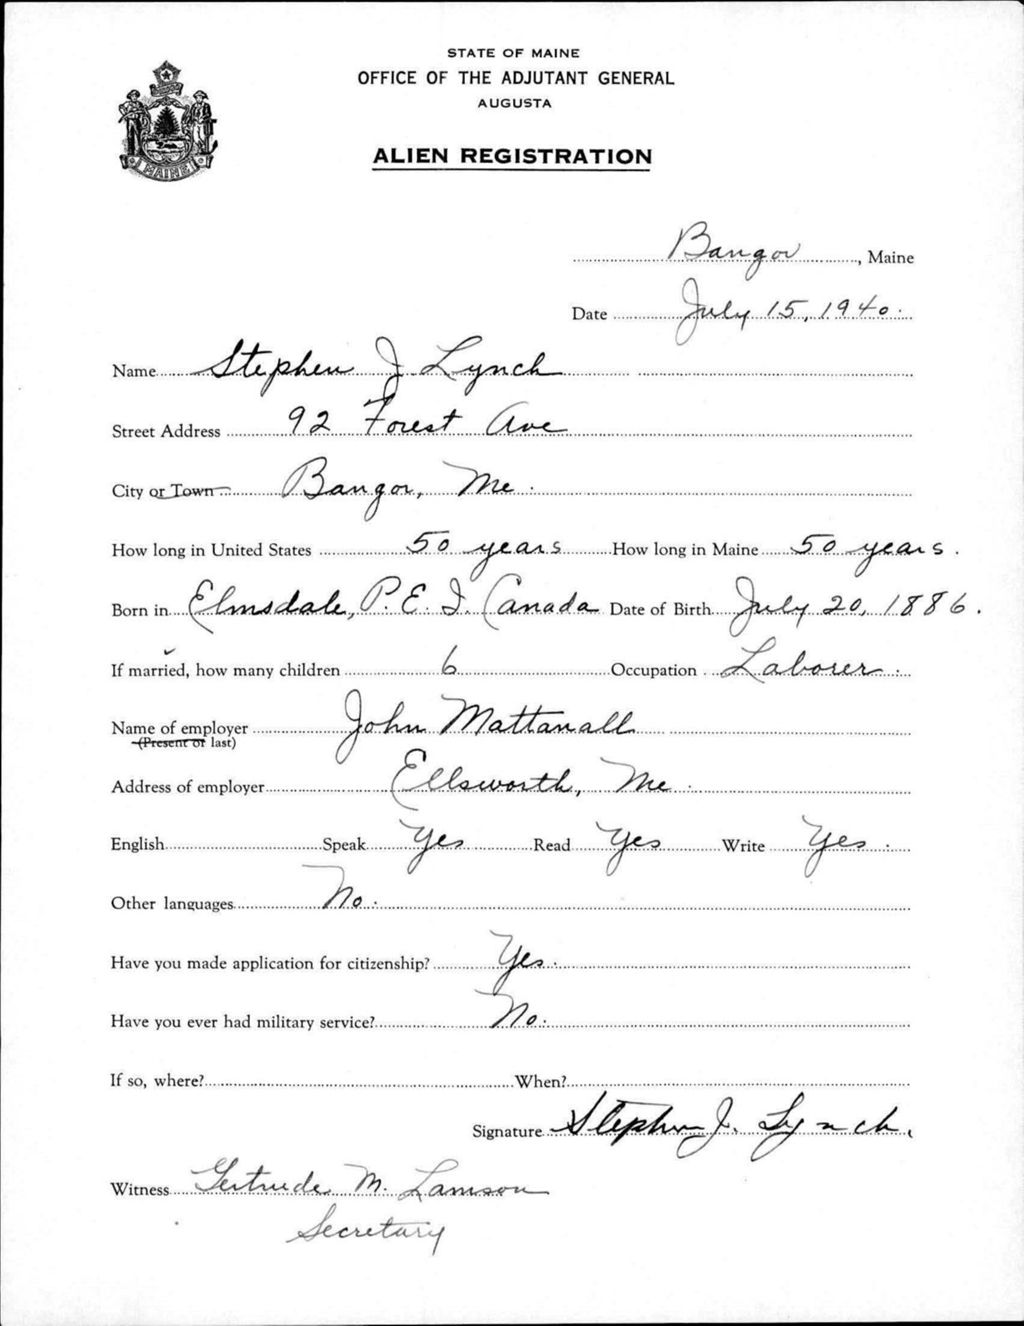 STATE OF MAINE
OFFICE OF THE ADJUTANT GENERAL
AUGUSTA
ALIEN REGISTRATION
MAINE
Bangor, Maine
Date July 15, 1940.
Name Stephen J Lynch
Street Address 92 Forest Ave
City or Town Bangor, Me.
How long in United States 50 years How long in Maine 50 years.
Born in Elmsdale, P.E.I. Canada Date of Birth July 20, 1886.
If married, how many children 6 Occupation Laborer.
Name of employer John Mattanall
(Present or last)
Address of employer Ellsworth, Me.
English Speak Yes Read Yes Write Yes.
Other languages No.
Have you made application for citizenship? Yes.
Have you ever had military service? No.
If so, where? When?
Signature Stephen J. Lynch.
Witness Gertrude M. Lamson
Secretary